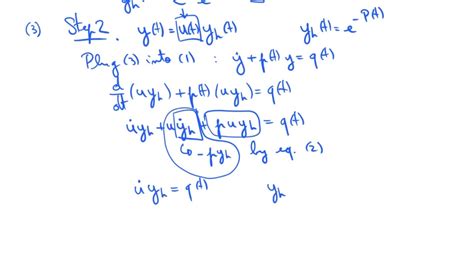 (3) Step 2. y(t) = u(t) y_h(t) y_h(t) = e^{-P(t)}
Plug (3) into (1) : ẏ + p(t) y = q(t)
d/dt (u y_h) + p(t) (u y_h) = q(t)
u̇ y_h + u ẏ_h + p u y_h = q(t)
↳ - p y_h by eq. (2)
u̇ y_h = q(t) y_h